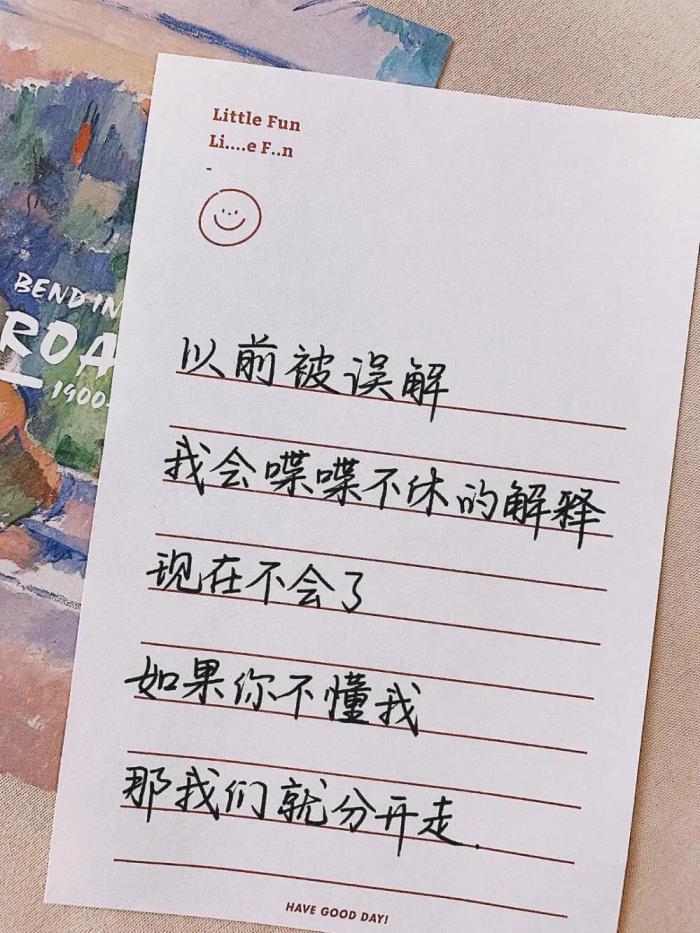 Little Fun
Li....e F..n
BENDIN
ROA
1900
以前被误解
我会喋喋不休的解释
现在不会了
如果你不懂我
那我们就分开走.
HAVE GOOD DAY!